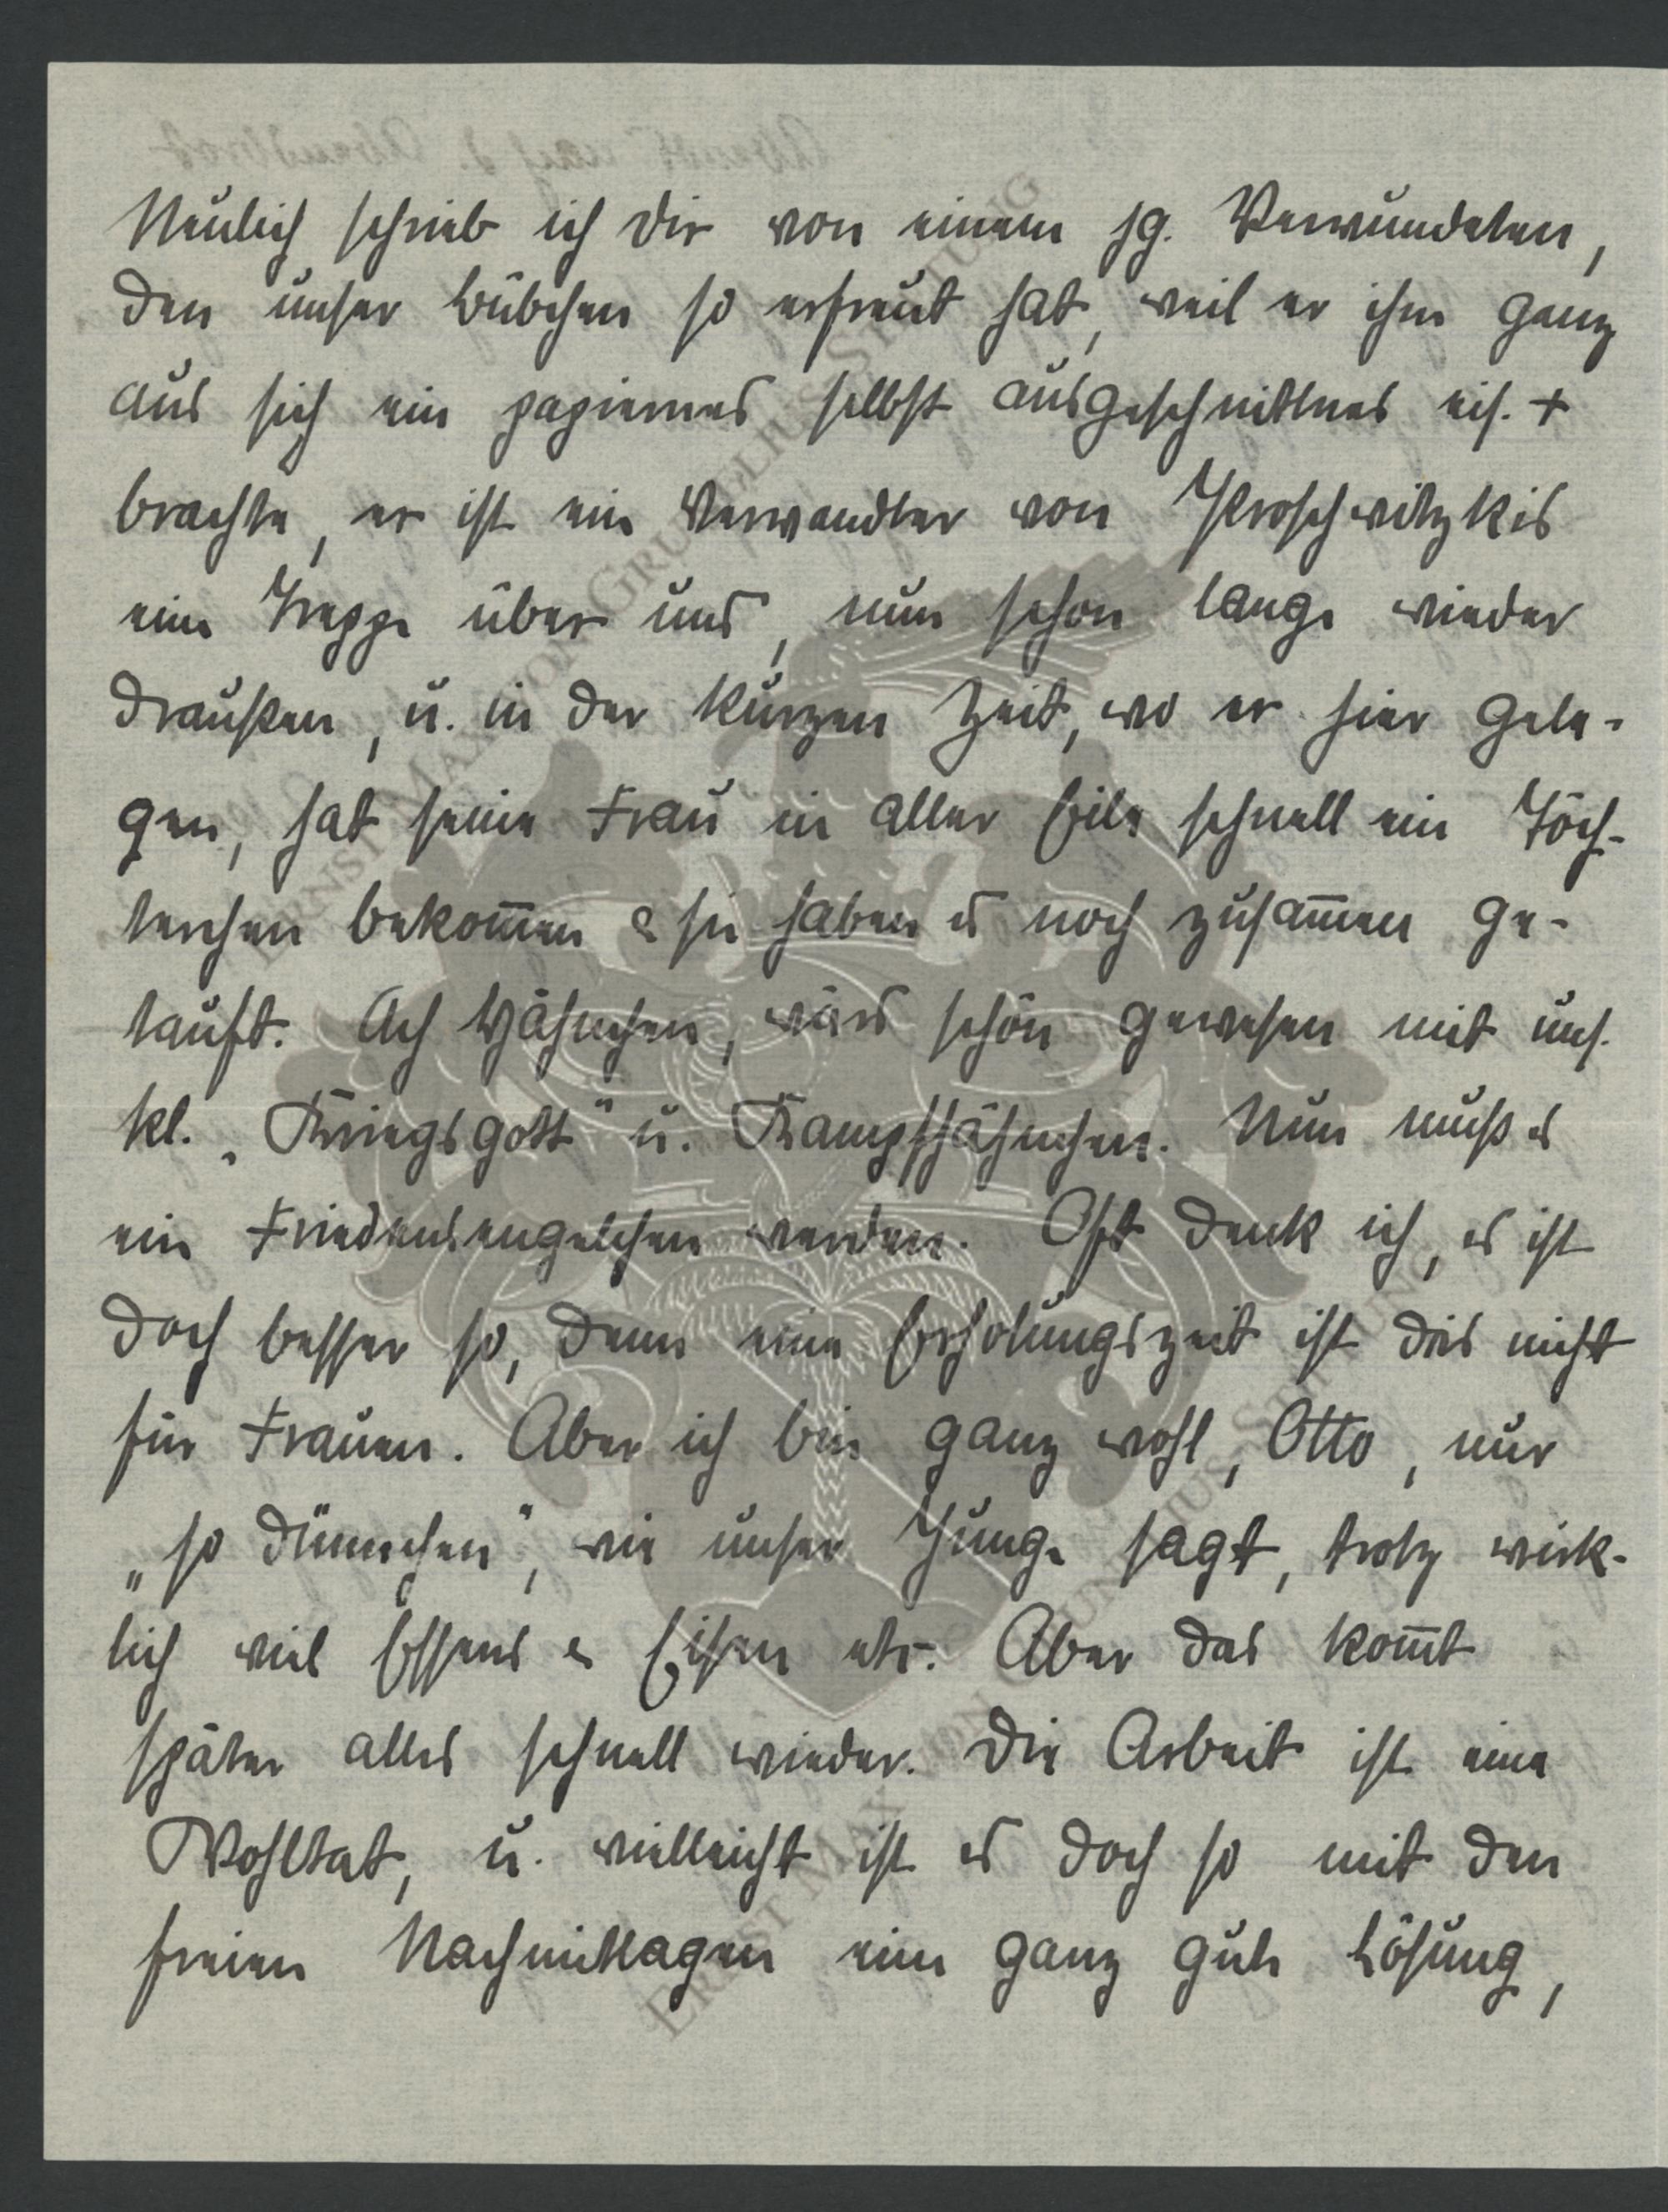 Neulich schrieb ich Dir von einem jg. Verwundeten,
den unser Bübchen so erfreut hat, weil er ihm ganz
aus sich ein papiernes selbst ausgeschnittnes eis. +
brachte, er ist ein Verwandter von
eine Treppe über uns, nun schon lange wieder
draußen, u. in der kurzen Zeit, wo er hier gele-
gen, hat seine Frau in aller Eile schnell ein Töch-
terchen bekom̅en & sie haben es noch zusam̅en ge-
tauft. Ach, wärs schön gewesen mit uns.
kl. „Kriegsgott" u. Kampfhähnchen. Nun muß es
ein Friedensengelchen werden. Oft denk ich, es ist
doch besser so, denn eine Erholungszeit ist dies nicht
für Frauen. Aber ich bin ganz wohl, Otto, nur
„so dünnchen", wie unser Junge sagt, trotz wirk-
lich viel Essens & Eisen etc. Aber das kom̅t
später alles schnell wieder. Die Arbeit ist eine
Wohltat, u. vielleicht ist es doch so mit den
freien Nachmittagen eine ganz gute Lösung,
ERNST MAX VON GRUNELIUS STIFTUNG
ERNST MAX VON GRUNELIUS STIFTUNG